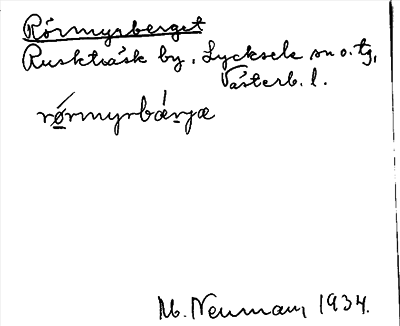 Rörmyrberget
Ruskträsk by, Lycksele sn o. tg,
Västerb. l.
rǿrmyrbærjæ
M. Neuman, 1934.